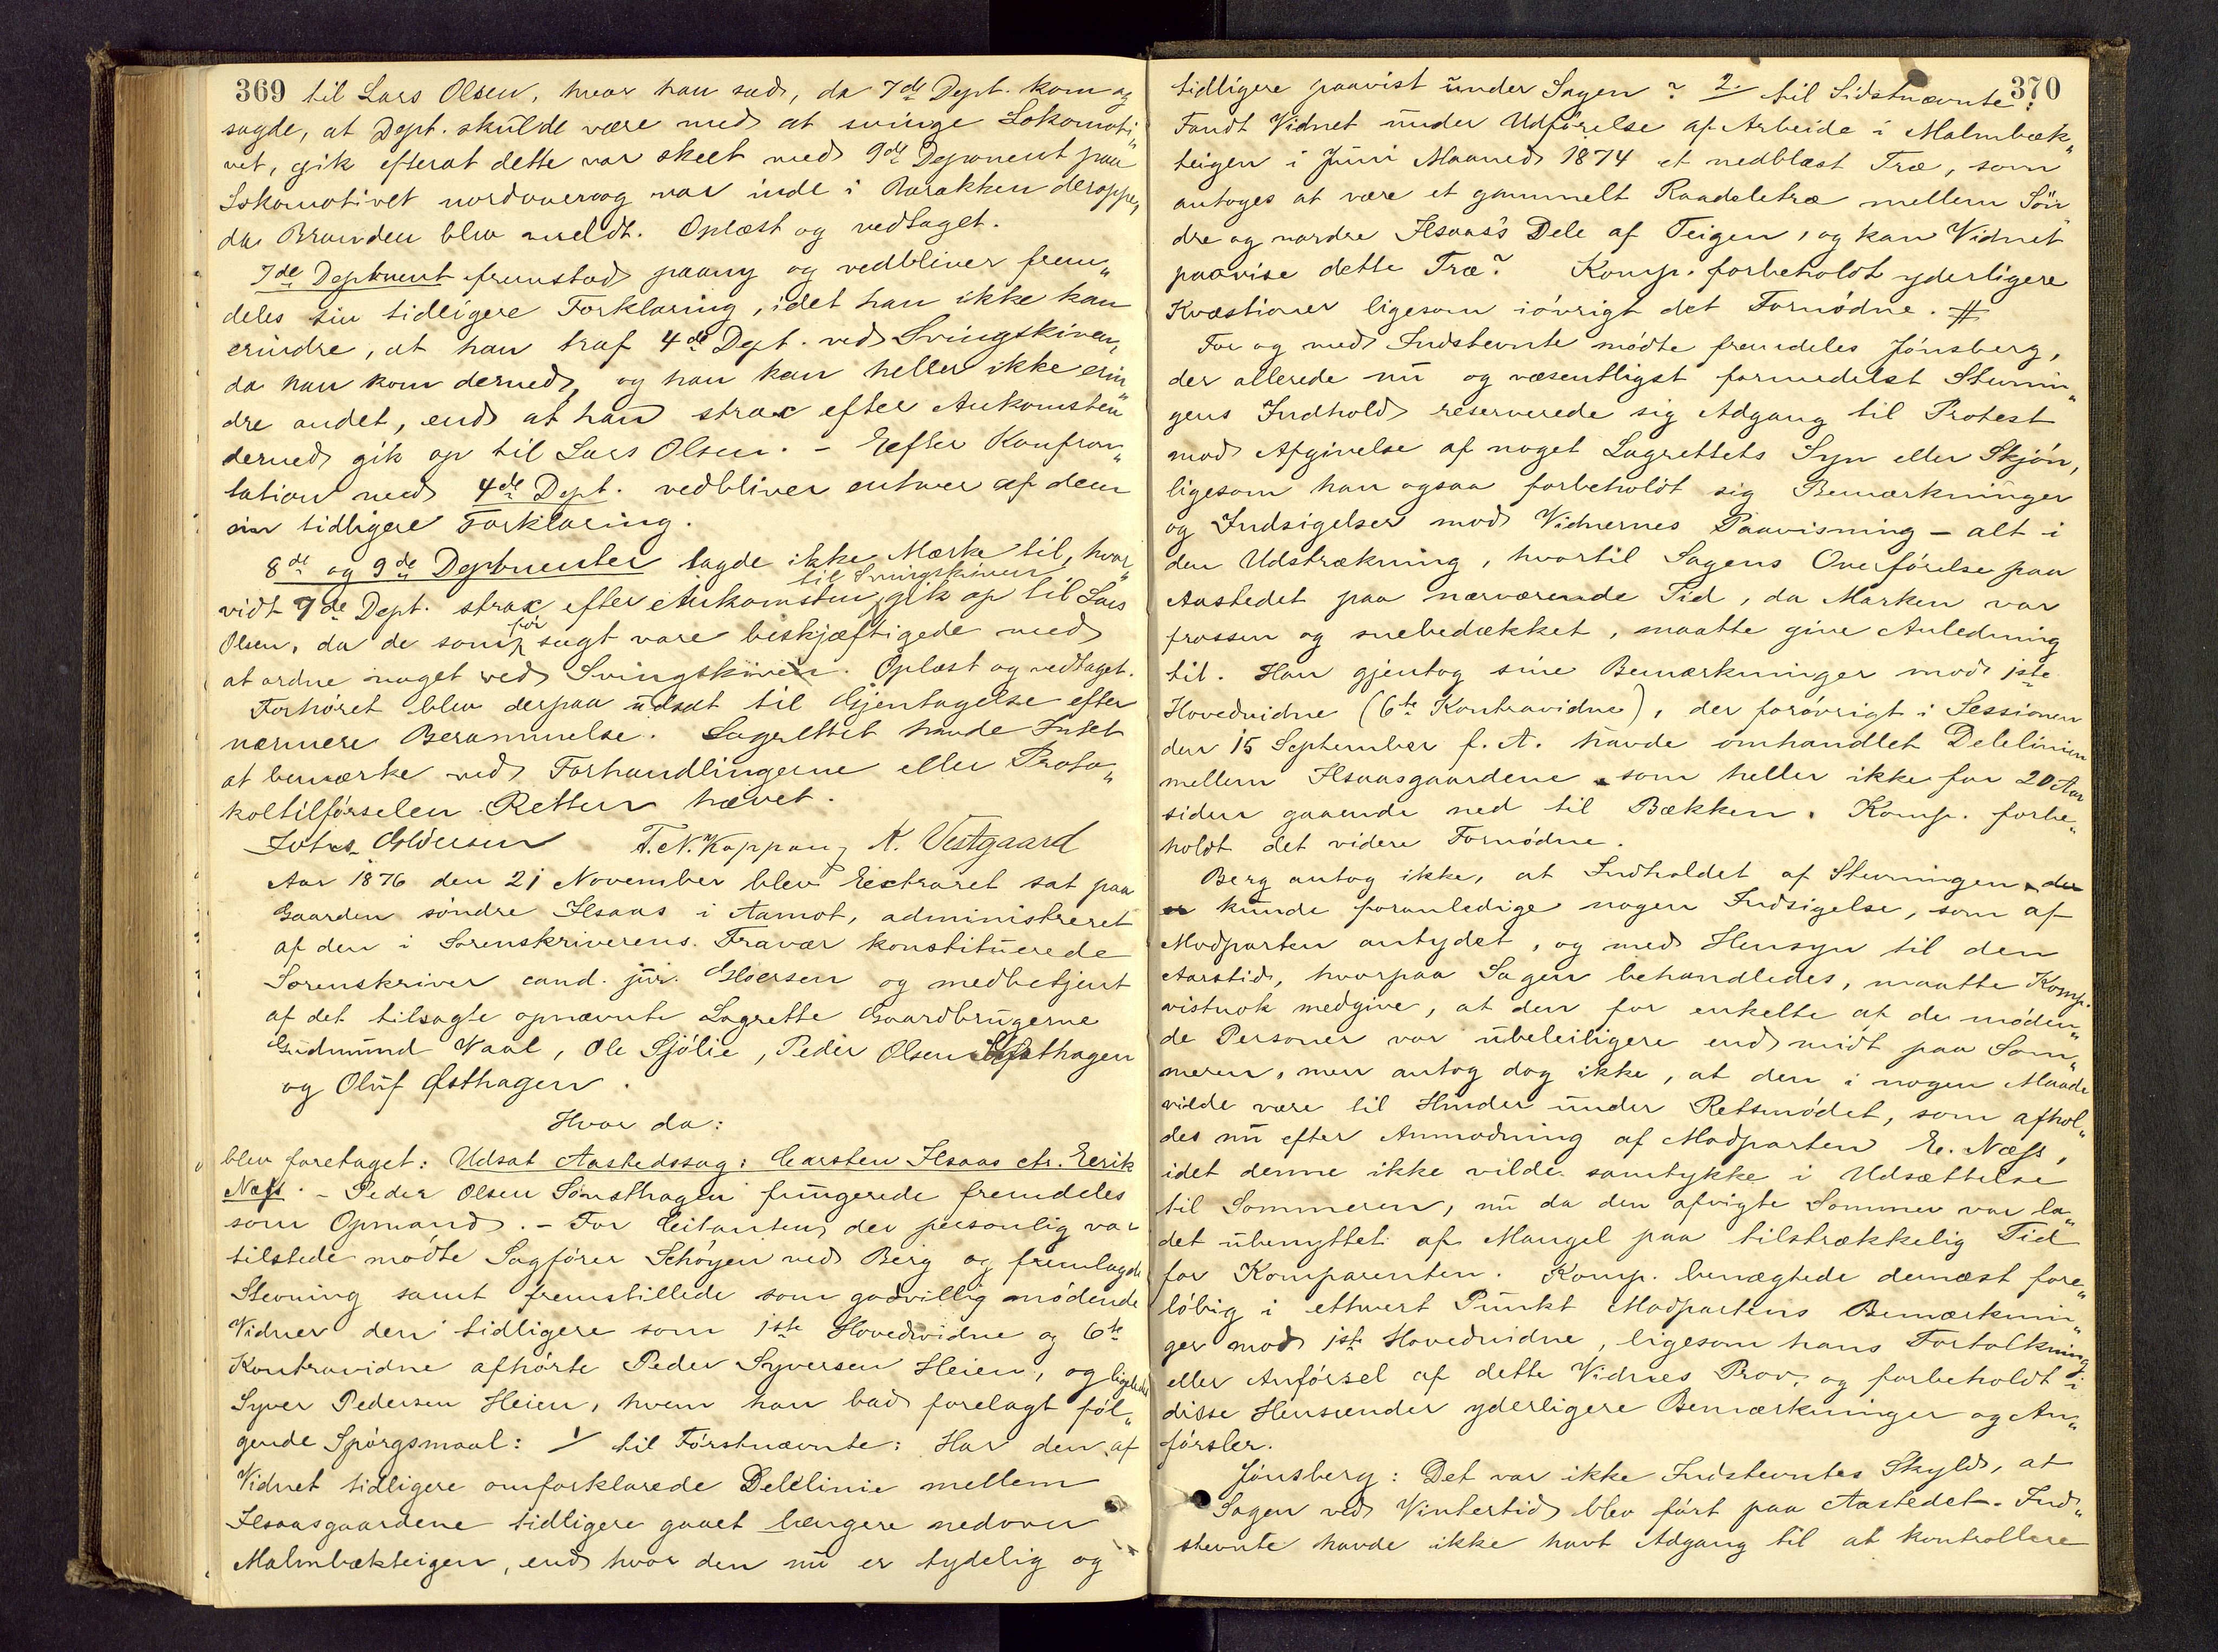 369 til Lars Olsen, hvor han sad, da 7de Dept. kom og
sagde, at Dept. skulde være med at svinge Lokomoti„
vet, gik efterat dette var skeet med 9de Deponent paa
Lokomotivet nordover og var inde i Barakken deroppe,
da Branden blev meldt. Oplæst og vedtaget.
7de Deponent fremstod paany og vedbliver frem„
deles sin tidligere Forklaring, idet han ikke kan
erindre, at han traf 4de Dept. ved Svingskiven,
da han kom derned, og han kan heller ikke erin„
dre andet, end at han strax efter Ankomsten
derned gik op til Lars Olsen. - Efter Konfron„
tation med 4de Dept. vedbliver enhver af dem
sin tidligere Forklaring.
8de og 9de Deponenter lagde ikke Mærke til, hvor„
til Svingskiven
vidt 7de Dept. strax efter Ankomsten gik op til Lars
Olsen, da de som før sagt vare beskjæftigede med
at ordne noget ved Svingskiven. Oplæst og vedtaget.
Forhøret blev derpaa udsat til Gjentagelse efter
nærmere Berammelse. Lagrettet havde Intet
at bemærke ved Forhandlingerne eller Proto„
koltilførselen. Retten hævet.
T. N. Koppang K. Vestgaard
Aar 1876 den 21 November blev Extraret sat paa
Gaarden søndre Ilsaas i Aamot, administreret
af den i Sorenskriverens Fravær konstituerede
Sorenskriver cand. jur. Gløersen og medbetjent
af det tilsagte opnævnte Lagrette Gaardbrugerne
Gudmund Vaal, Ole Sjølie, Peder Olsen Sønsthagen
og Oluf Østhagen.
Hvor da:
blev foretaget: Udsat Aastedssag: Carsten Ilsaas ctr. Eerik
Næss. - Peder Olsen Sønsthagen fungerede fremdeles
som Opmand. - For Citanten, der personlig var
tilstede mødte Sagfører Schøyen ved Berg og fremlagde
Stevning samt fremstillede som godvillig mødende
Vidner den tidligere som 1ste Hovedvidne og 6te
Kontravidne afhørte Peder Syversen Heien, og ligeledes
Syver Pedersen Heien, hvem han bad forelagt føl„
gende Spørgsmaal: 1/ til Førstnævnte: Har den af
Vidnet tidligere omforklarede Delelinie mellem
Ilsaasgaardene tidligere gaaet længere nedover
Malmbækteigen, end hvor den nu er tydelig og
370
tidligere paavist under Sagen? 2/ til Sidstnævnte:
Fandt Vidnet under Udførelse af Arbeide i Malmbæk„
teigen i Juni Maaned 1874 et nedblæst Træ, som
antoges at være et gammelt Raadeletræ mellem Søn„
dre og nordre Ilsaas's Dele af Teigen, og kan Vidnet
paavise dette Træ? Komp. forbeholdt yderligere
Kvæstioner ligesom iøvrigt det Fornødne. #
For og med Indstevnte mødte fremdeles Jønsberg,
der allerede nu og væsentligst formedelst Stevnin„
gens Indhold reserverede sig Adgang til Protest
mod Afgivelse af noget Lagrettets Syn eller Skjøn,
ligesom han ogsaa forbeholdt sig Bemærkninger
og Indsigelser mod Vidnernes Paavisning - alt i
den Udstrækning, hvortil Sagens Overførelse paa
Aastedet paa nærværende Tid, da Marken var
frossen og snebedækket, maatte give Anledning
til. Han gjentog sine Bemærkninger mod 1ste
Hovedvidne (6te Kontravidne), der forøvrigt i Sessionen
den 15 September f. A. havde omhandlet Delelinien
mellem Ilsaasgaardene som heller ikke for 20 Aar
siden gaaende ned til Bækken. Komp. forbe„
holdt det videre Fornødne.
Berg antog ikke, at Indholdet af Stevningen
kunde foranledige nogen Indsigelse, som af
Modparten antydet, og med Hensyn til den
Aarstid, hvorpaa Sagen behandledes, maatte Komp.
vistnok medgive, at den for enkelte af de møden„
de Personer var ubeleiligere end midt paa Som„
meren, men antog dog ikke, at den i nogen Maade
vilde være til Hinder under Retsmødet, som afhol„
des nu efter Anmodning af Modparten E. Næss,
idet denne ikke vilde samtykke i Udsættelse
til Sommeren, nu da den afvigte Sommer var la„
det ubenyttet af Mangel paa tilstrækkelig Tid
for Komparenten. Komp. benægtede dernæst fore„
løbig i ethvert Punkt Modpartens Bemærknin„
ger mod 1ste Hovedvidne, ligesom hans Fortolkning
eller Anførsel af dette Vidnes Prov, og forbeholdt i
disse Henseender yderligere Bemærkninger og An„
førsler.
Jønsberg: Det var ikke Indstevntes Skyld, at
Sagen ved Vintertid blev ført paa Aastedet. Ind„
stevnte havde ikke havt Adgang til at kontrollere